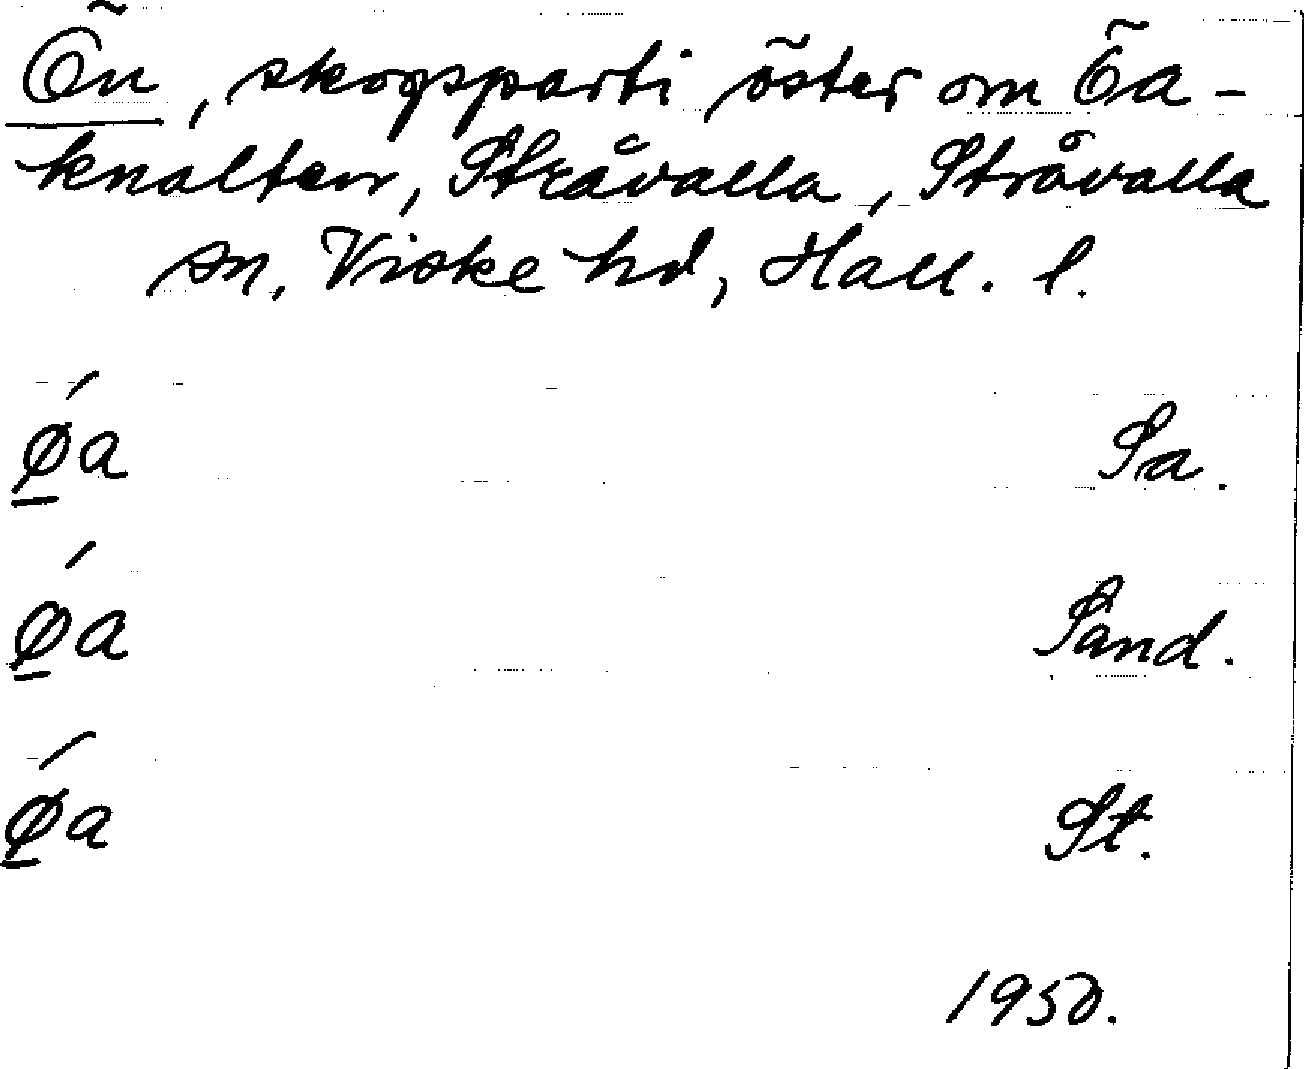 Ön, skogsparti öster om Öa-
knalten, Stråvalla, Stråvalla
sn, Viske hd, Hall. l.
ǿa Sa.
ǿa Sand.
ǿa St.
1950.